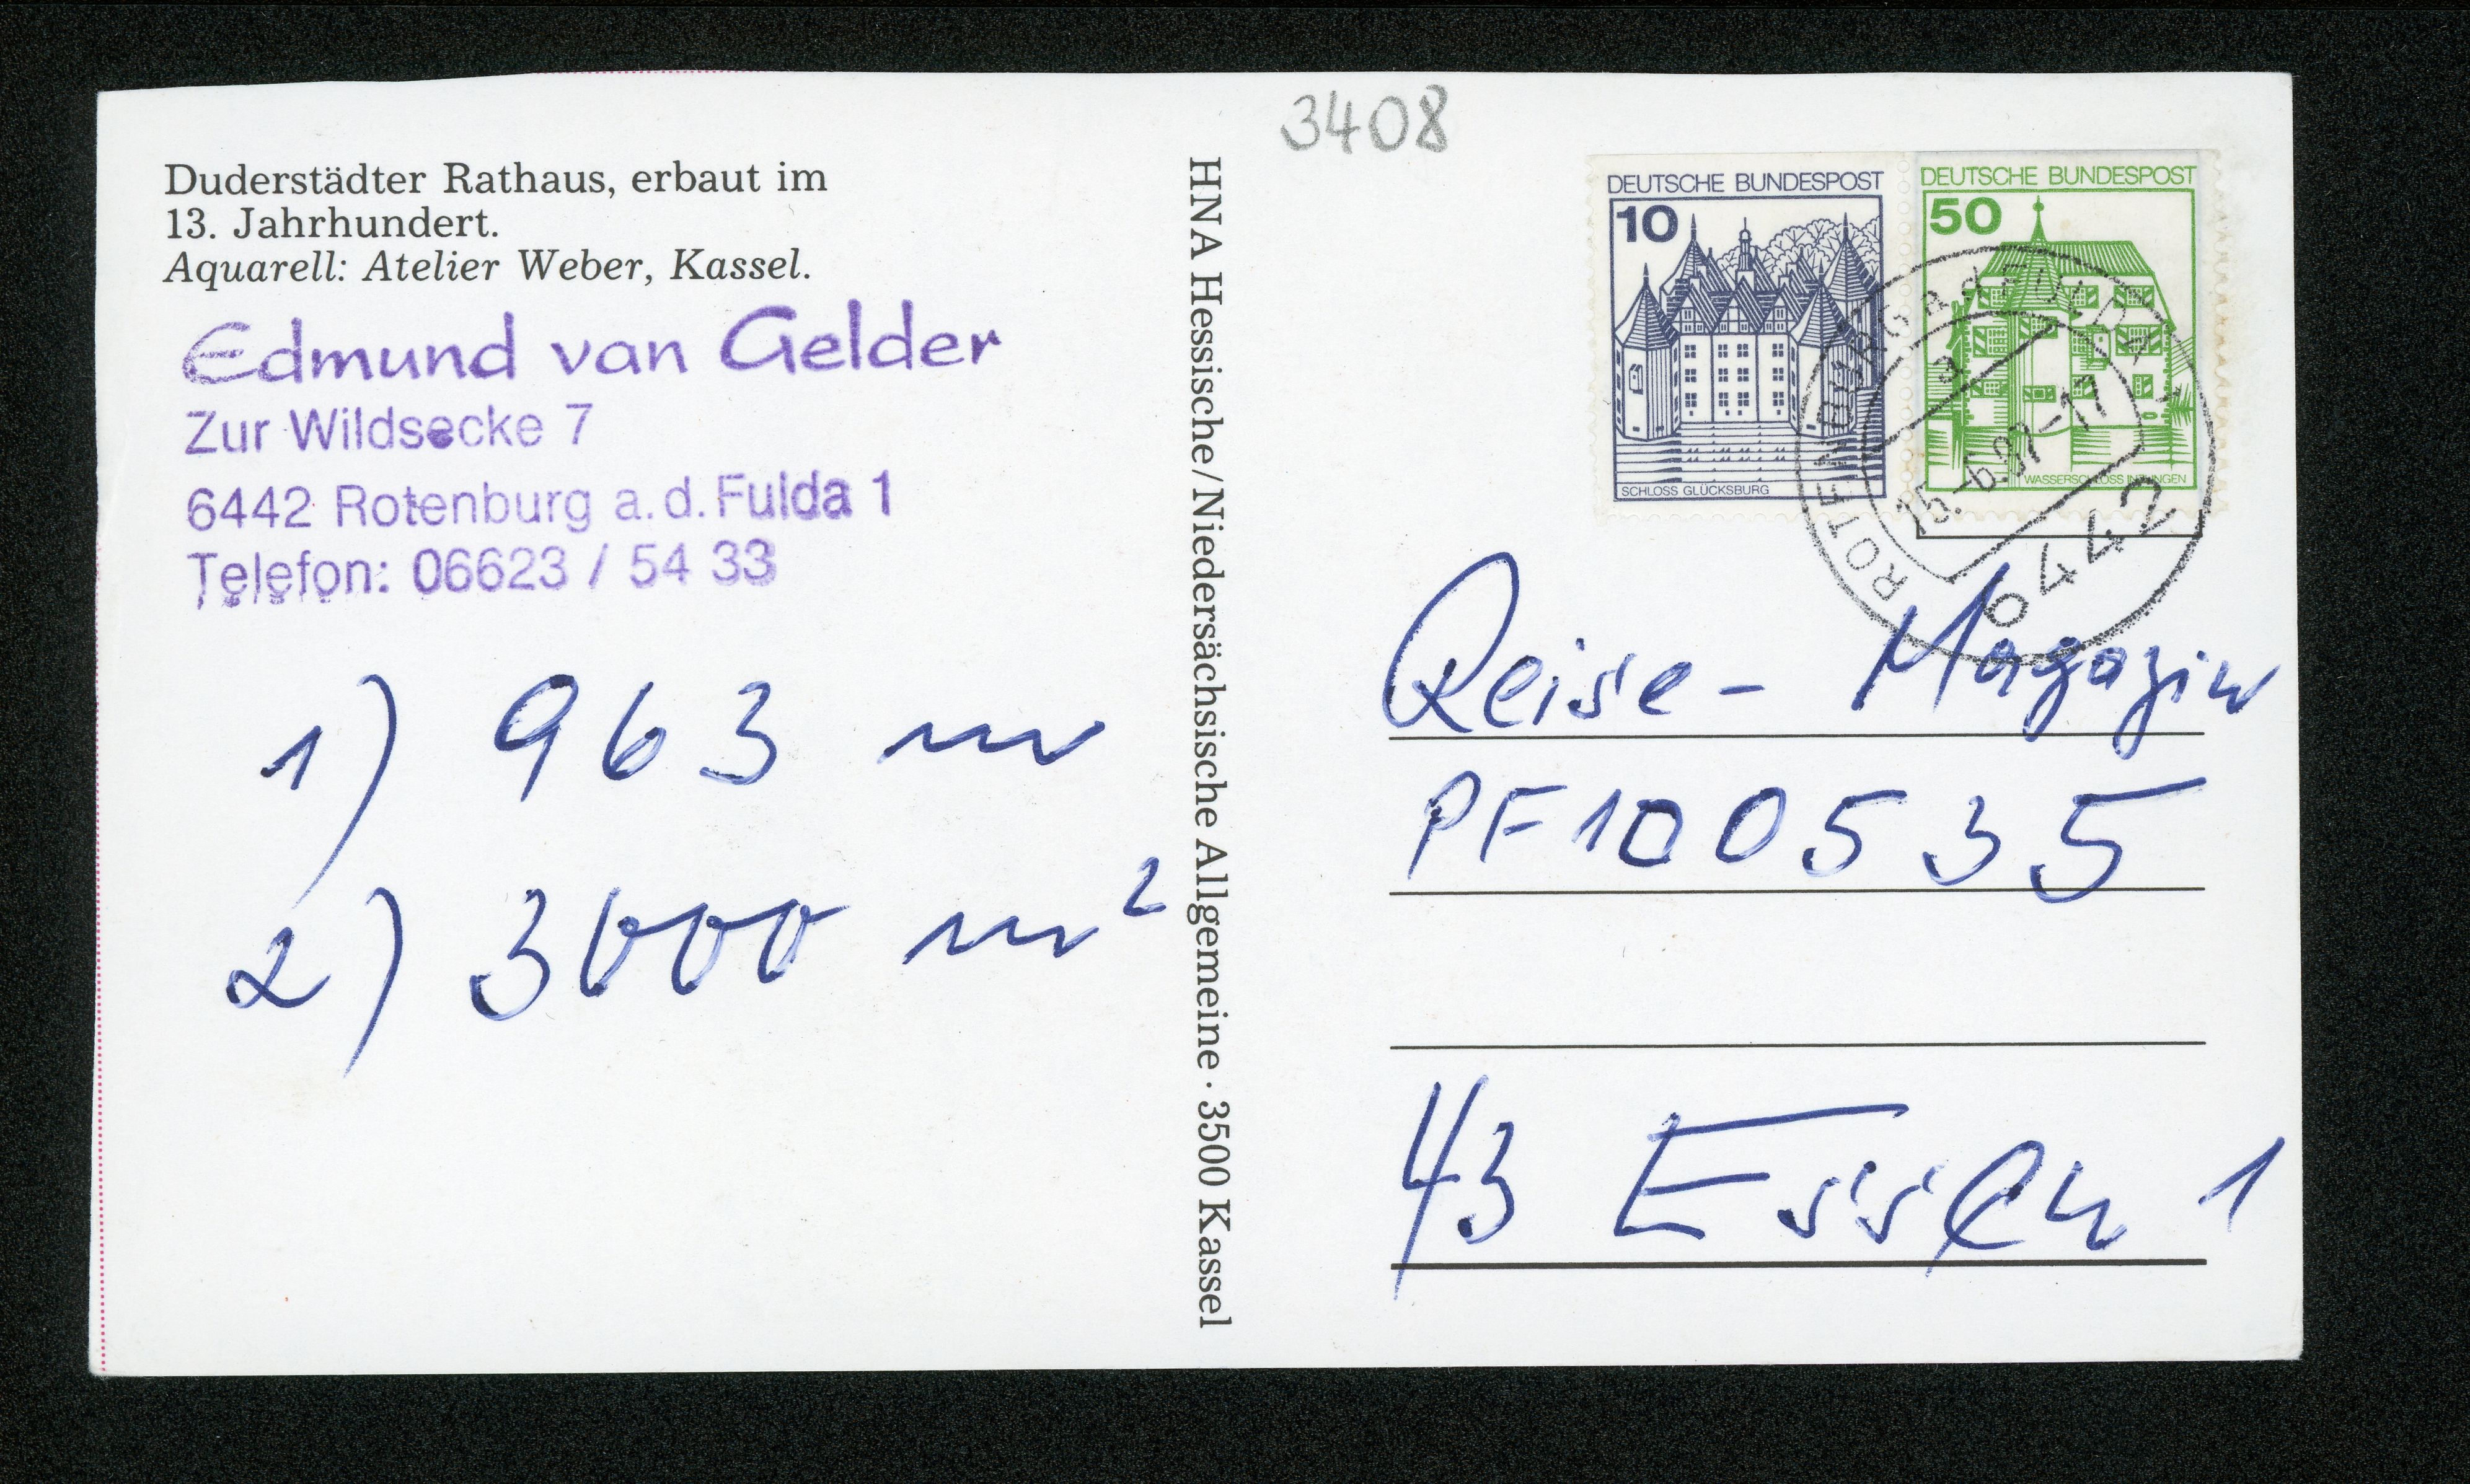 Duderstädter Rathaus, erbaut im
13. Jahrhundert.
Aquarell: Atelier Weber, Kassel.
Edmund van Gelder
Zur Wildsecke 7
6442 Rotenburg a.d. Fulda 1
Telefon: 06623 / 54 33
1) 963 m
2) 3000 m²
HNA Hessische/Niedersächsische Allgemeine · 3500 Kassel
3408
DEUTSCHE BUNDESPOST
10
SCHLOSS GLÜCKSBURG
DEUTSCHE BUNDESPOST
50
WASSERSCHLOSS INZLINGEN
ROTENBURG a d FULDA
a
15.-6.87-17
6442
Reise-Magazin
PF 100535
43 Essen 1